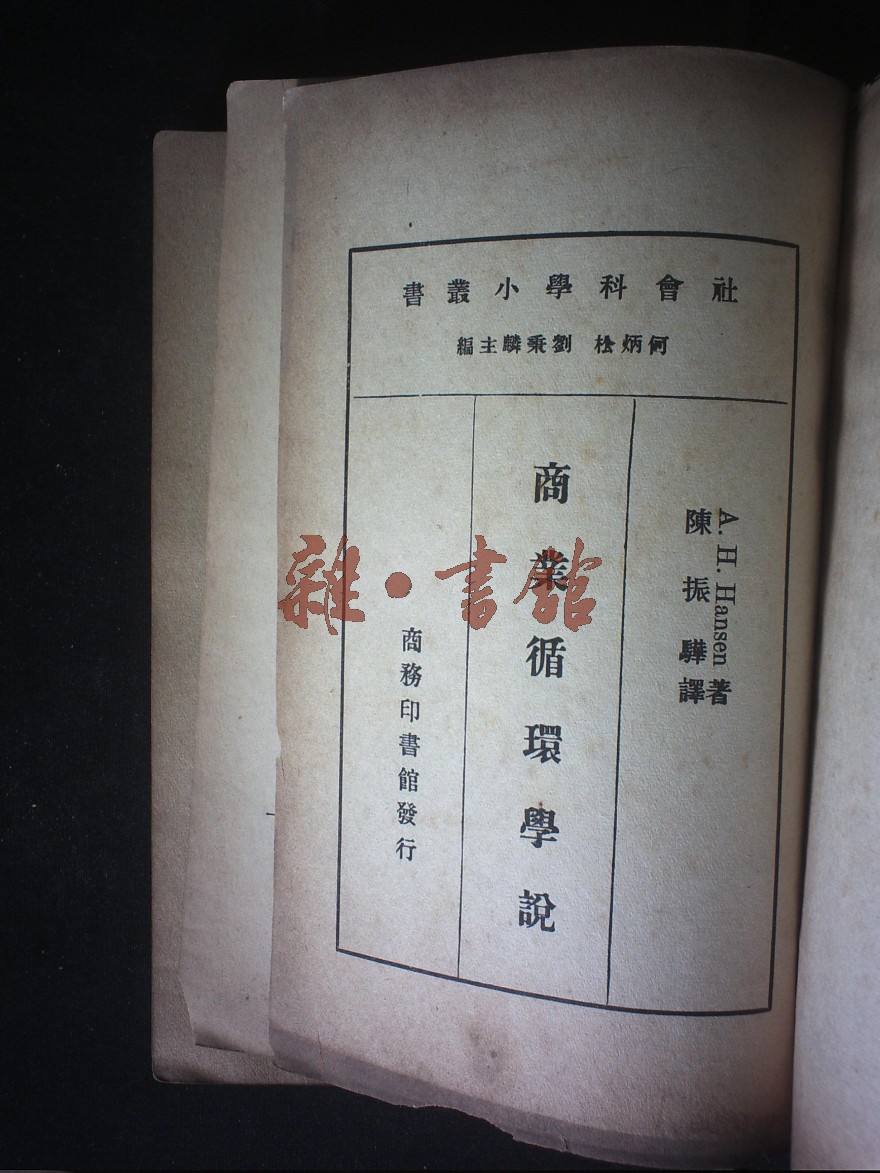 社會科學小叢書
何炳松 劉秉麟主編
A. H. Hansen 著
陳振驊譯
商業循環學說
商務印書館發行
雜·書館